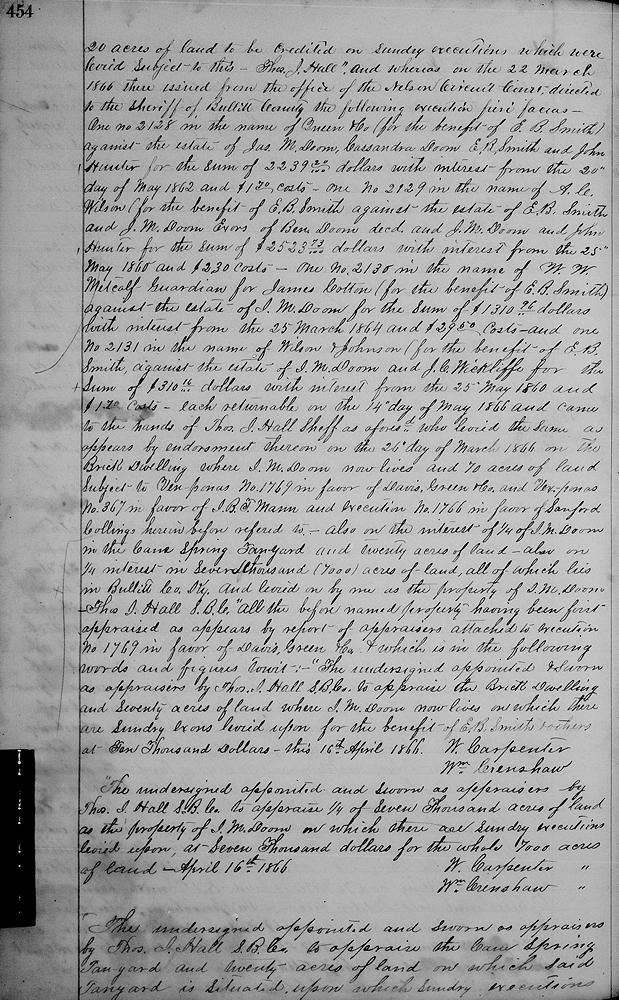 454
20 acres of land to be credited on sundry executions which were
levied subject to this - Thos. J. Hall", and whereas on the 22 March
1866 there issued from the office of the Nelson Circuit Court, directed
to the Sheriff of Bullitt County the following execution fieri facias -
One no 2128 in the name of Green & Co (for the benefit of E. B. Smith)
against the estate of Jas. M. Doom, Cassandra Doom E. B. Smith and John
Hunter for the sum of 2239 dollars with interest from the 20"
day of May 1862 and $1 70 costs - one No 2129 in the name of A. C.
Wilson (for the benefit of E. B. Smith against the estate of E. B. Smith
and J. M. Doom Exors of Ben Doom decd. and J. M. Doom and John
Hunter for the sum of $2523 73/100 dollars with interest from the 25"
May 1860 and $2,30 costs - One No, 2130 in the name of W. W.
Metcalf Guardian for James Cotton (for the benefit of E. B. Smith)
against the estate of J. M. Doom for the sum of $1310 96 dollars
with interest from the 25 March 1864 and $29 50 Costs - and one
No 2131 in the name of Wilson & Johnson (for the benefit of E. B.
Smith, against the estate of J. M. Doom and J. C. Wickliffe for the
sum of $310 dollars with interest from the 25" May 1860 and
$1 70 costs - each returnable on the 14" day of May 1866 and came
to the hands of Thos. J. Hall Shff as aforesd. who levied the same as
appears by endorsment thereon on the 26" day of March 1866 on the
Brick Dwelling where J. M. Doom now lives and 70 acres of land
subject to Ven-ponas No. 1769 in favor of Davis, Green & Co. and Vex-ponas
No. 367 in favor of J. B. T. Mann and execution No. 1766 in favor of Sanford
Collings herein before refered to, - also on the interest of 1/4 of J. M. Doom
in the Cane Spring Tanyard and twenty acres of land - also on
1/4 interest in Seven thousand (7000) acres of land, all of which lies
in Bullitt Co. Ky, and levied on by me as the property of J. M. Doom
- Thos J. Hall S. B. C. " all the before named property having been first
appraised as appears by report of appraisers attached to execution
No 1769 in favor of Davis, Green & Co. & which is in the following
words and figures towit: - "The undersigned appointed & sworn
as appraisers by Thos. J. Hall S. B. Co. to appraise the Brick Dwelling
and Seventy acres of land where J. M. Doom now lives on which there
are Sundry Exons levied upon for the benefit of E. B. Smith & others
at Ten Thousand Dollars - this 16th April 1866. W. Carpenter
Wm Crenshaw
"The undersigned appointed and sworn as appraisers by
Thos. J. Hall S. B. Co. to appraise 1/4 of Seven Thousand acres of land
as the property of J. M. Doom on which there are Sundry executions
levied upon, at Seven Thousand dollars for the whole 7000 acres
of land - April 16th 1866 W. Carpenter "
Wm Crenshaw "
"The undersigned appointed and sworn as appraisers
by Thos. J. Hall S. B. Co. to appraise the Cane Spring
Tanyard and twenty acres of land on which said
Tanyard is situated, upon which Sundry executions